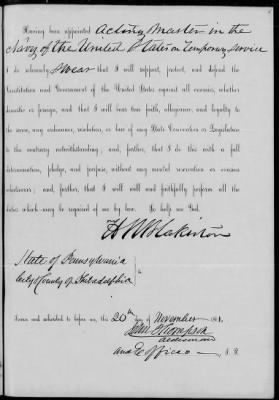 Having been appointed Acting Master in the
Navy of the United States on Temporary Service
I do solemnly Swear that I will support, protect, and defend the
Constitution and Government of the United States against all enemies, whether
domestic or foreign, and that I will bear true faith, allegiance, and loyalty to
the same, any ordinance, resolution, or law of any State Convention or Legislature
to the contrary notwithstanding; and, further, that I do this with a full
determination, pledge, and purpose, without any mental reservation or evasion
whatsoever; and, further, that I will well and faithfully perform all the
duties which may be required of me by law. So help me God.
H Blakiston
State of Pennsylvania
City & County of Philadelphia
Sworn and subscribed to before me, this 20th day of November 1861.
Thompson
Alderman
and Ex Officio J. P.